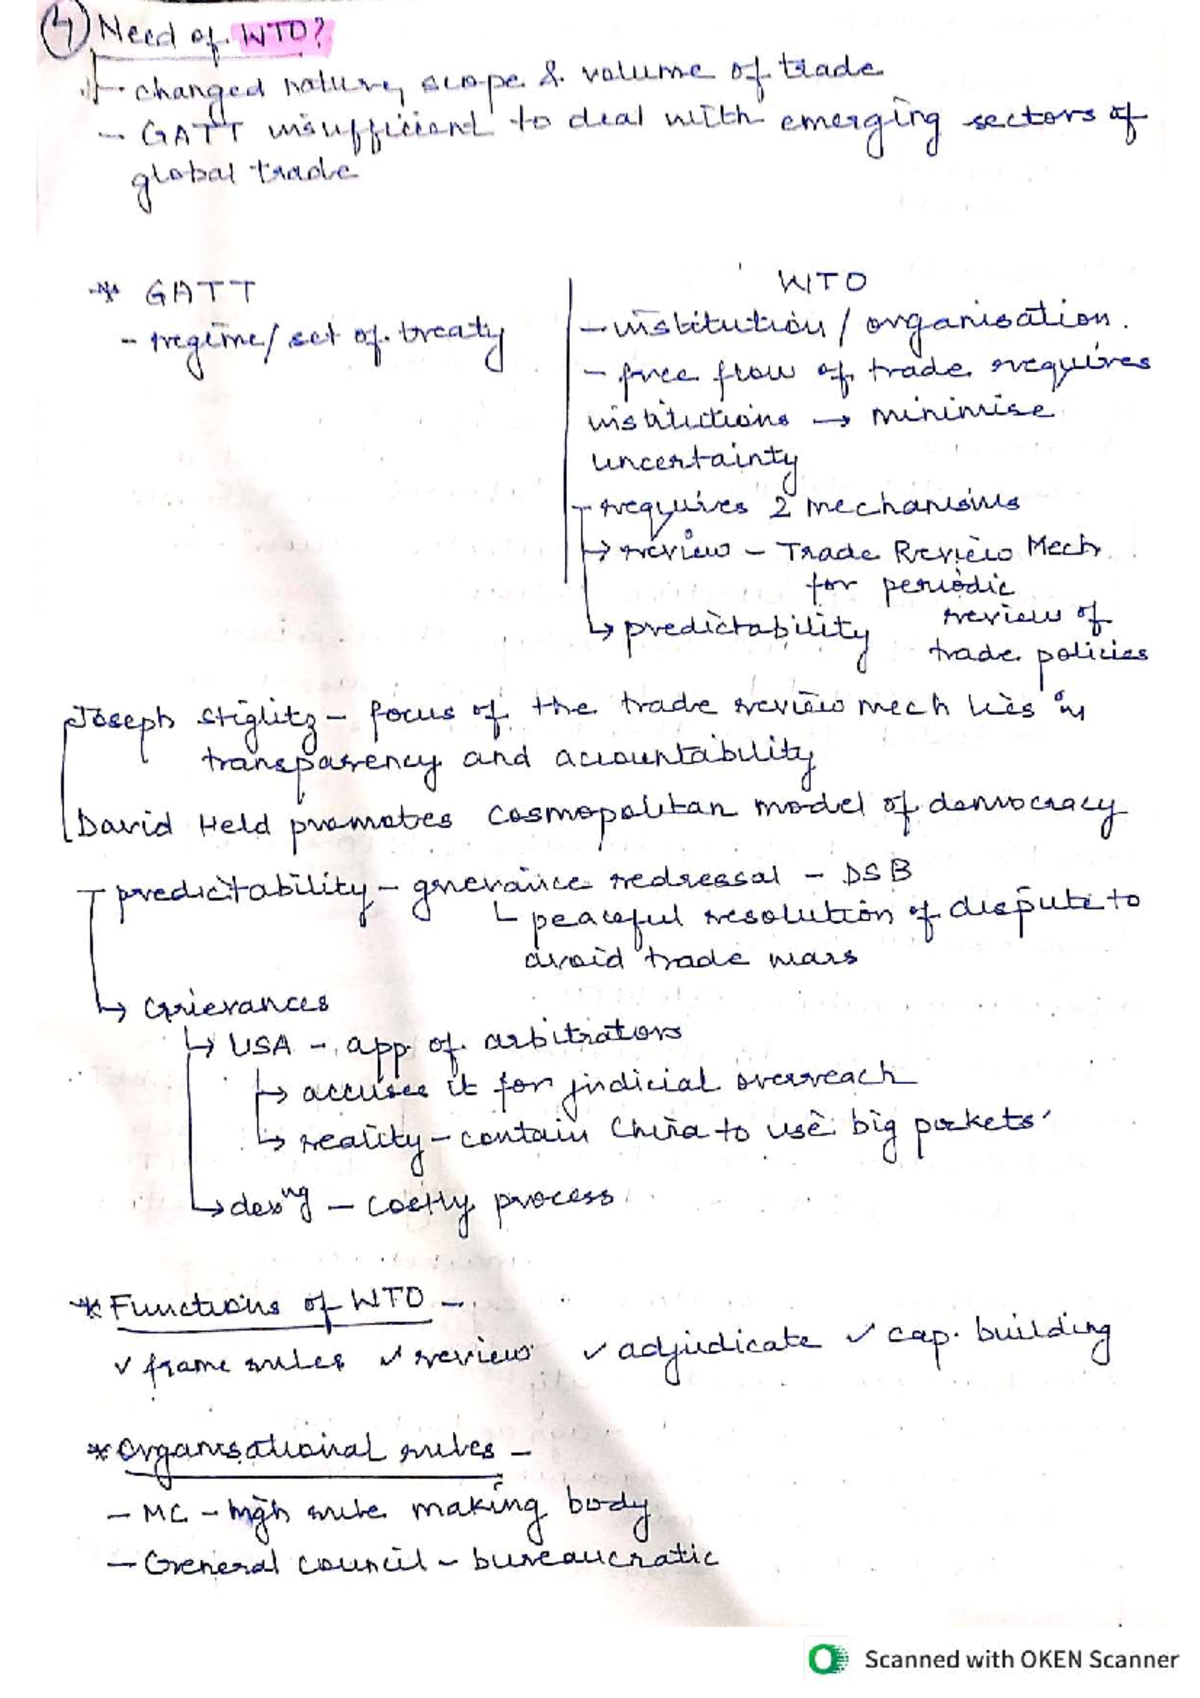 4) Need of WTO?
- changed nature, scope & volume of trade
- GATT insufficient to deal with emerging sectors of
global trade
* GATT
- regime/ set of treaty
WTO
- institution / organisation.
- free flow of trade requires
institutions → minimise
uncertainty
- requires 2 mechanisms
→ review - Trade Review Mech
for periodic
review of
trade policies
↳ predictability
Joseph Stiglitz - focus of the trade review mech lies in
transparency and accountability
David Held promotes cosmopolitan model of democracy
predictability - grievance redressal - DSB
└ peaceful resolution of dispute to
avoid trade wars
↳ Grievances
↳ USA - app of arbitrators
↳ accuses it for judicial overreach
↳ reality - contain China to use big pockets
↳ deving - costly process
* Functions of WTO -
✓ frame rules ✓ review ✓ adjudicate ✓ cap. building
* Organisational rules -
- MC - high rule making body
- General council - bureaucratic
Scanned with OKEN Scanner